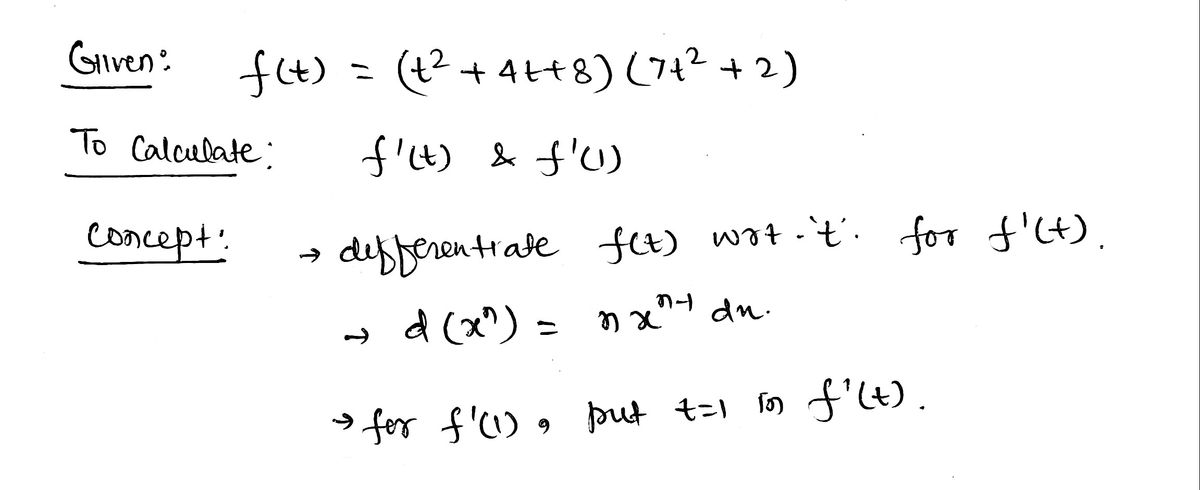 Given: f(t) = (t² + 4t+8) (7t² + 2)
To Calculate: f'(t) & f'(1)
Concept: → differentiate f(t) wrt 't' for f'(t).
→ d(xⁿ) = n xⁿ⁻¹ dx.
→ for f'(1), put t=1 in f'(t).